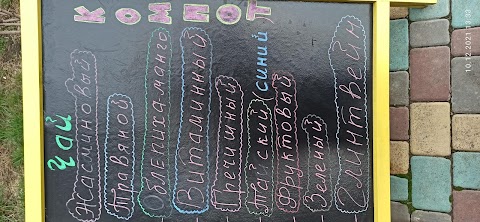 КОМПОТ
Чай
Жасминовый
Травяной
Облепиха манго
Витаминный
Гречишный
Тайский синий
Фруктовый
Зеленый
Глинтвейн
10.12.2021 13:33